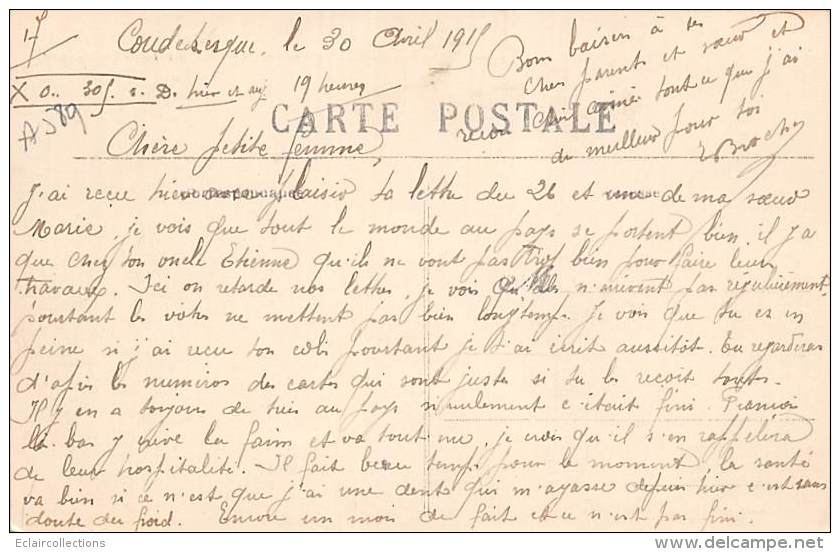 17
Coudekerque, le 30 Avril 1915
X 0.. 305. s. D. hier et auj 19 heures
AJ 89
CARTE POSTALE
Bons baisers à tes
chers parents et sœur et
reçois chérie aimée tout ce que j'ai
de meilleur pour toi
E Brochy
Chère petite femme,
J'ai reçu hier avec plaisir ta lettre du 26 et une de ma sœur
Marie, je vois que tout le monde au pays se portent bien il y a
que chez ton oncle Etienne qu'ils ne vont pas trop bien pour faire leurs
travaux. Ici on retarde nos lettres, je vois qu'elles n'arrivent pas régulièrement
pourtant les votres ne mettent pas bien longtemps. Je vois que tu es en
peine si j'ai reçu ton colis pourtant je t'ai écrit aussitôt. Tu regarderas
d'après les numéros des cartes qui sont justes si tu les reçoit toutes.
Il y en a toujours de tués au pays si seulement c'était fini. Francis
là bas y crève la faim et va tout nu, je crois qu'il s'en rappellera
de leur hospitalité. Il fait beau temps pour le moment, la santé
va bien si ce n'est que j'ai une dent qui m'agasse depuis hier c'est sans
doute du froid. Encore un mois de fait et ce n'est pas fini.
Eclaircollections
www.delcampe.net